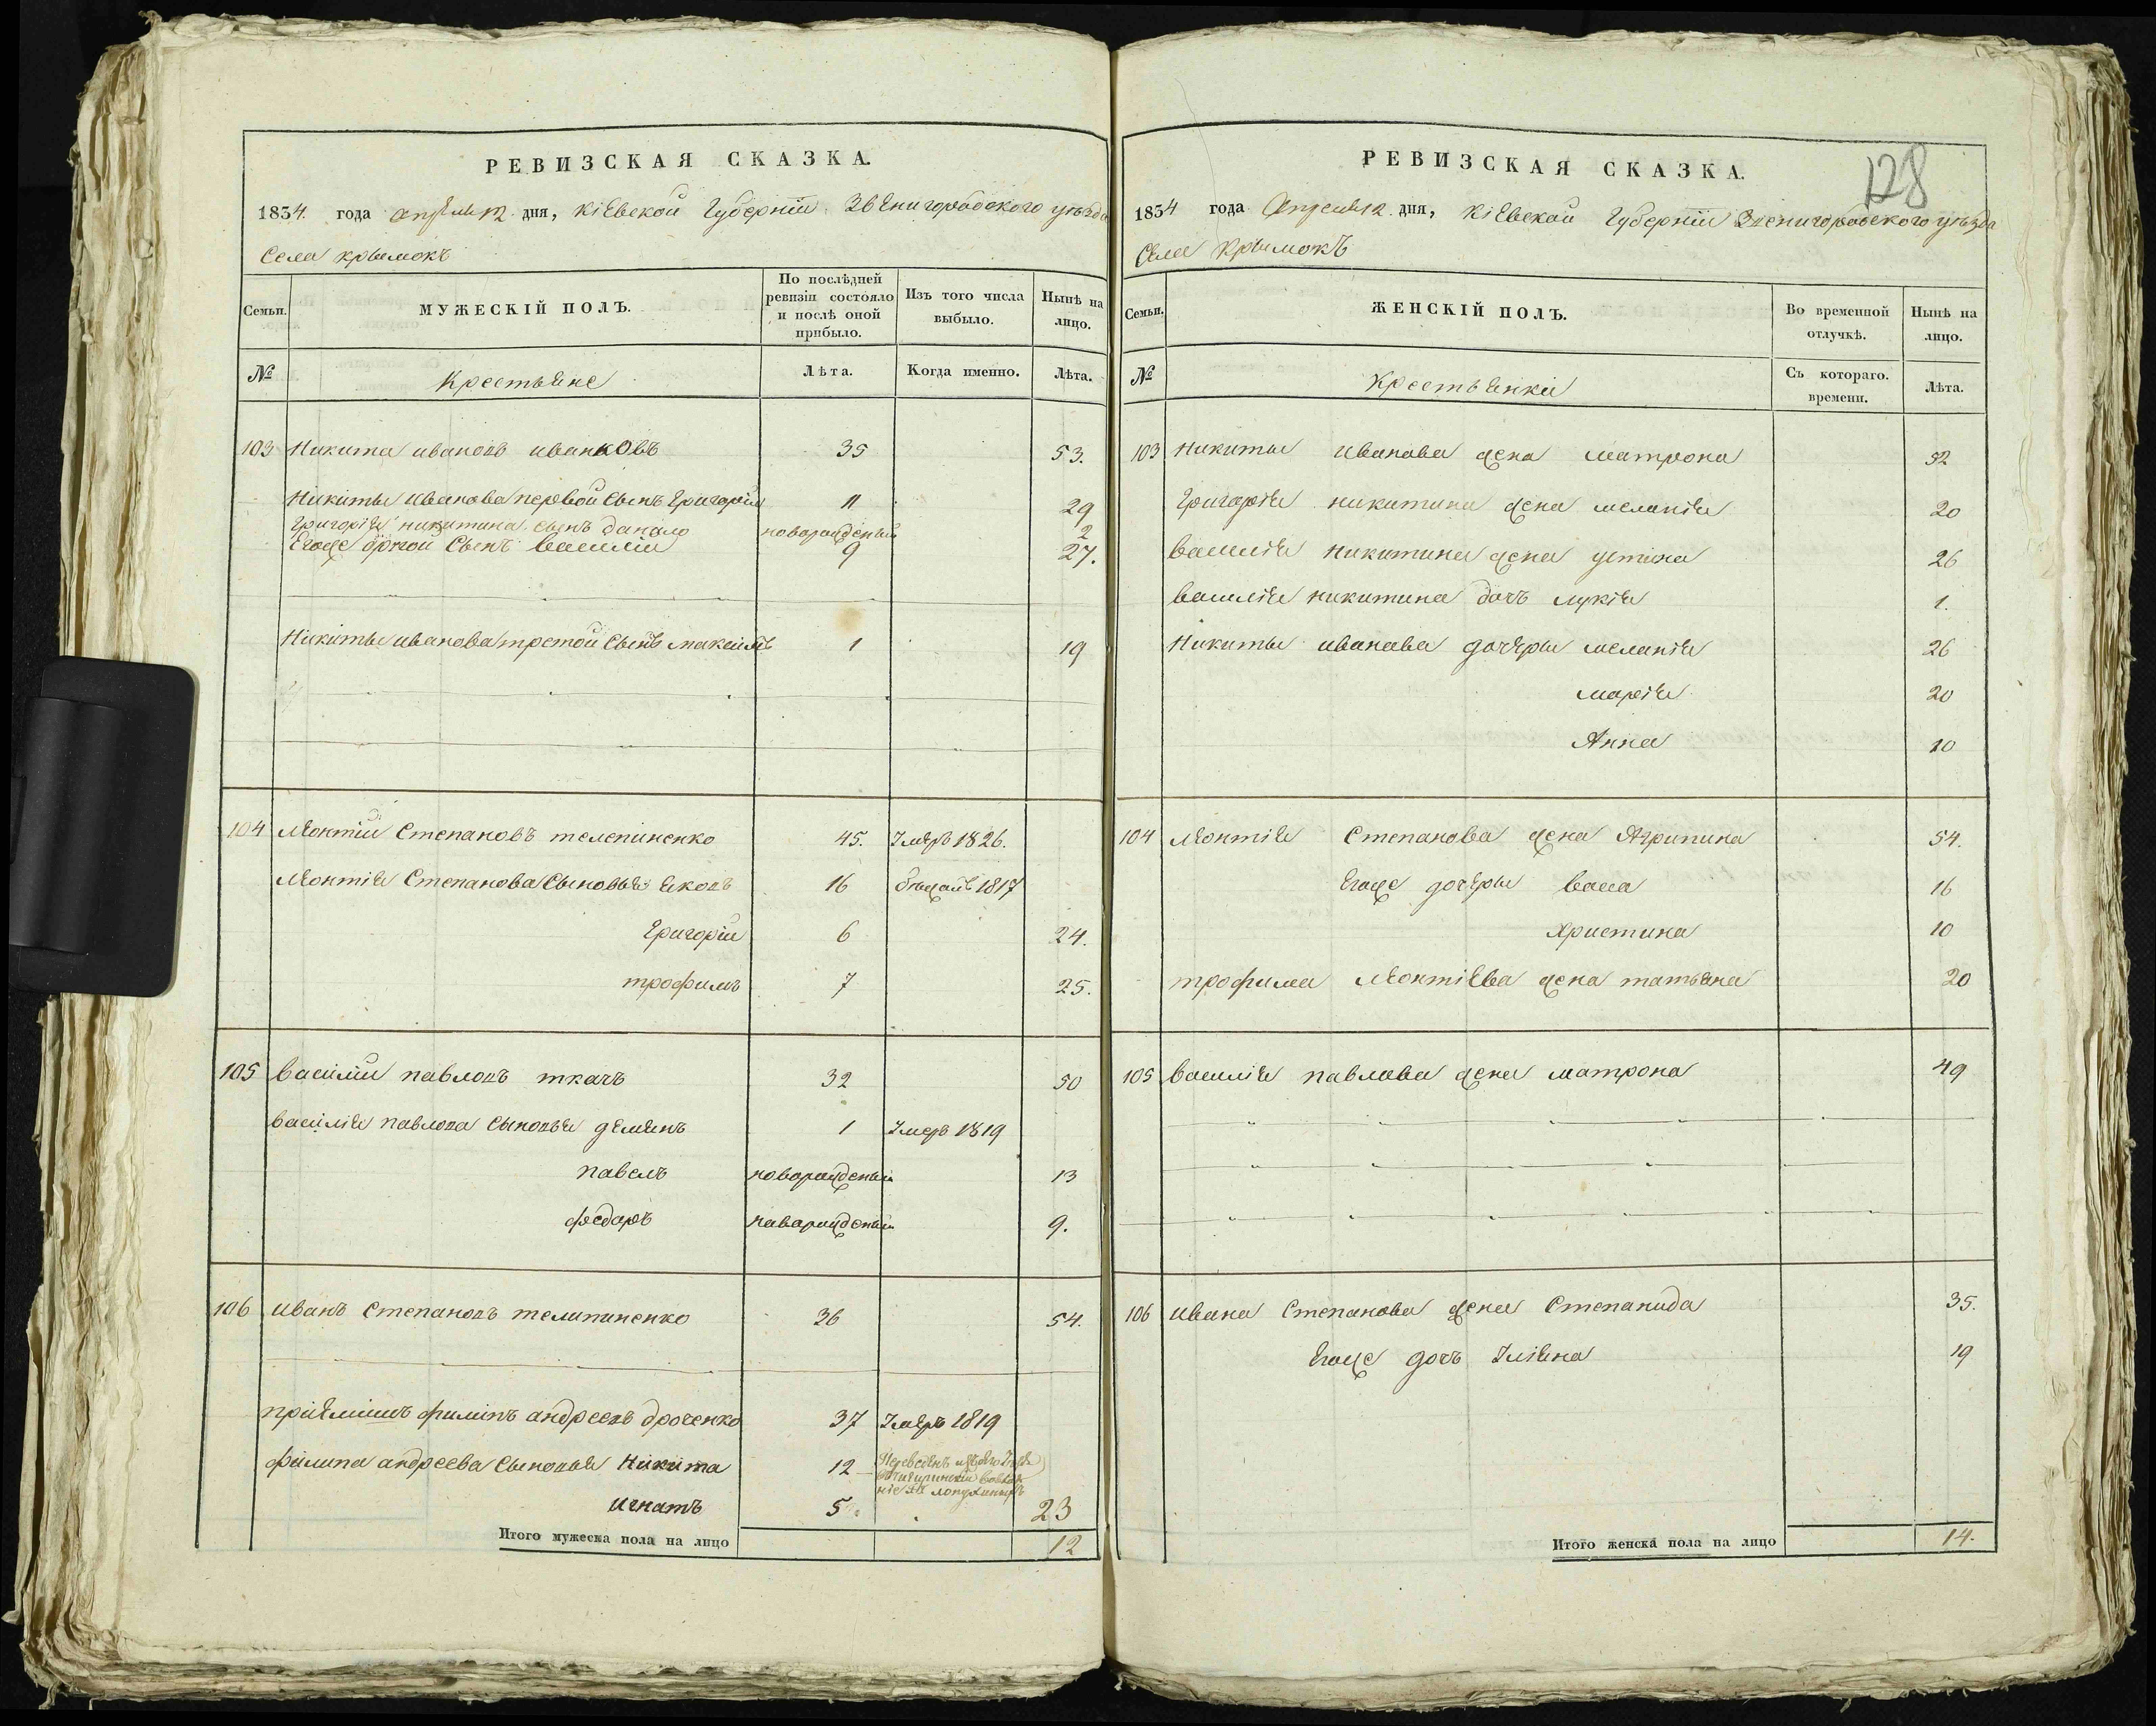 РЕВИЗСКАЯ СКАЗКА.
1834. года апреля 12 дня, Кіевской Губерніи Звенигородского уѣзда
Села Крымокъ
Семьи. МУЖЕСКІЙ ПОЛЪ. По послѣдней ревизіи состояло и послѣ оной прибыло. Изъ того числа выбыло. Нынѣ на лицо.
№ Крестьяне Лѣта. Когда именно. Лѣта.
103 Никита ивановъ иванковъ 35 53.
Никиты иванова первой сынъ Григорій 11 29
Григорія никитина сынъ данило новорожденый 2
Егоже другой сынъ василій 9 27.
Никиты иванова третой сынъ максимъ 1 19
104 Леонтій Степановъ телепиненко 45. Умеръ 1826.
Леонтія Степанова сыновья яковъ 16 бѣжалъ 1817
Григорій 6 24.
трофимъ 7 25.
105 василій павловъ ткачъ 32 50
василія павлова сыновья демянъ 1 Умеръ 1819
павелъ новорожденый 13
федоръ новорожденый 9.
106 иванъ Степановъ телипиненко 36 54.
пріемышъ филипъ андреевъ дроченко 37 Умеръ 1819
филипа андреева сыновья Никита 12 Переведенъ
игнатъ 5 23
Итого мужеска пола на лицо 12
РЕВИЗСКАЯ СКАЗКА.
128
1834 года Апреля 12 дня, Кіевской Губерніи Звенигородского уѣзда
Села Крымокъ
Семьи. ЖЕНСКІЙ ПОЛЪ. Во временной отлучкѣ. Нынѣ на лицо.
№ Крестьянки Съ котораго времени. Лѣта.
103 никиты иванова жена матрона 52
Григорія никитина жена меланія 20
василія никитина жена устина 26
василія никитина дочъ лукія 1.
Никиты иванова дочеры меланія 26
марія 20
Анна 10
104 Леонтія Степанова жена Агрипина 54.
Егоже дочеры васа 16
христина 10
трофима Леонтіева жена татьяна 20
105 василія павлова жена матрона 49
106 ивана Степанова жена Степанида 35.
Егоже дочъ Уліяна 19
Итого женска пола на лицо 14.